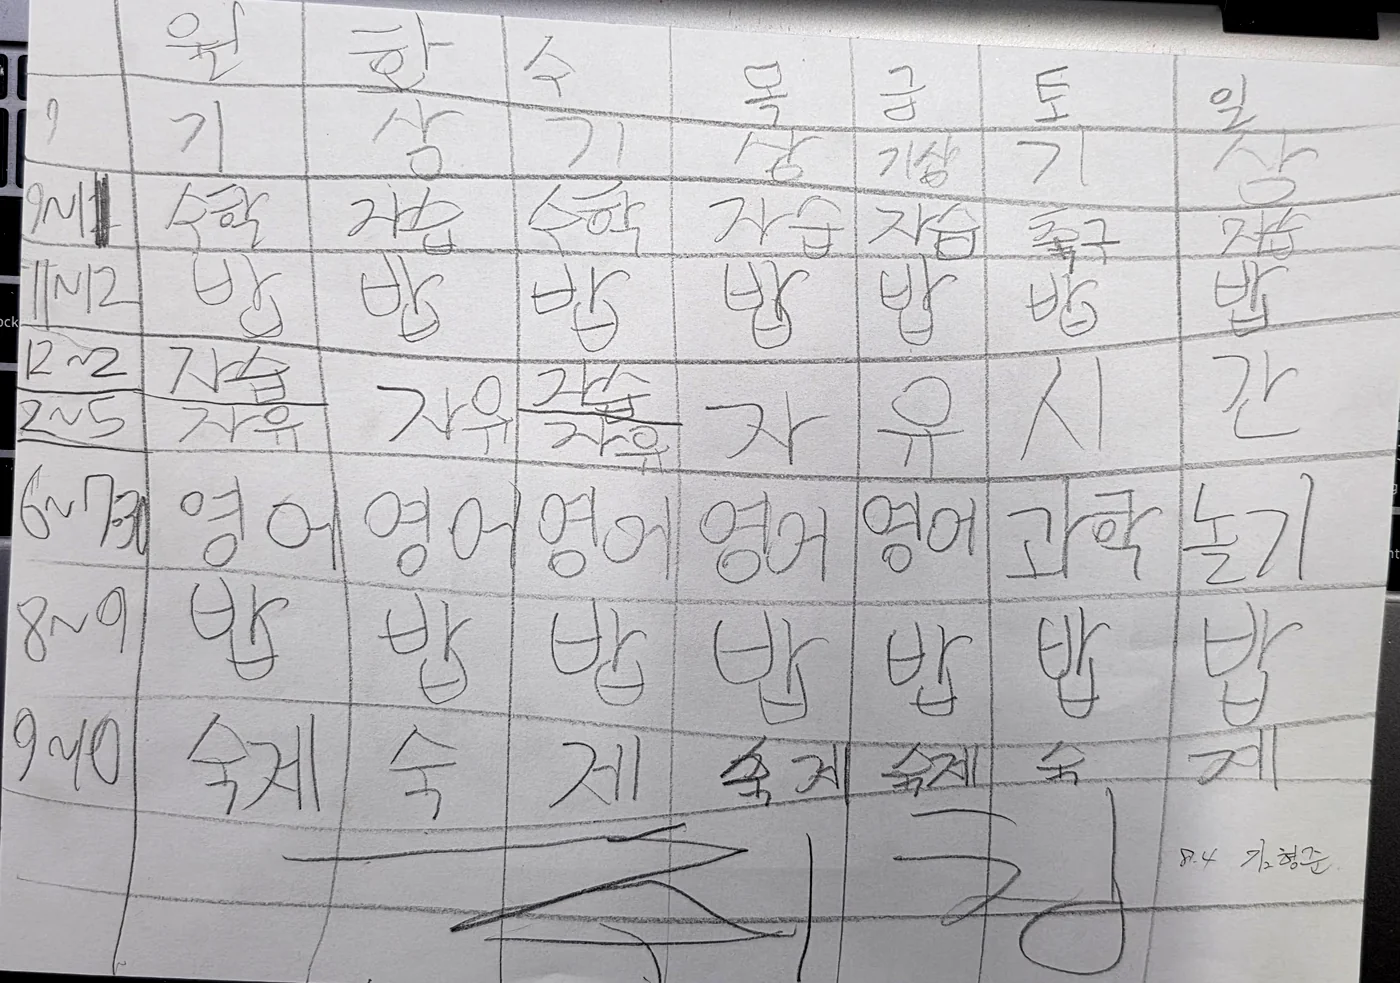 월 화 수 목 금 토 일
9 기 상 기 상 기상 기 상
9~11 수학 자습 수학 자습 자습 축구 자습
11~12 밥 밥 밥 밥 밥 밥 밥
12~2 자습 자유 자습 자 유 시 간
2~5 자유 자유
6~7:30 영어 영어 영어 영어 영어 과학 놀기
8~9 밥 밥 밥 밥 밥 밥 밥
9~10 숙제 숙 제 숙제 숙제 숙 제
취침
8.4 김형준